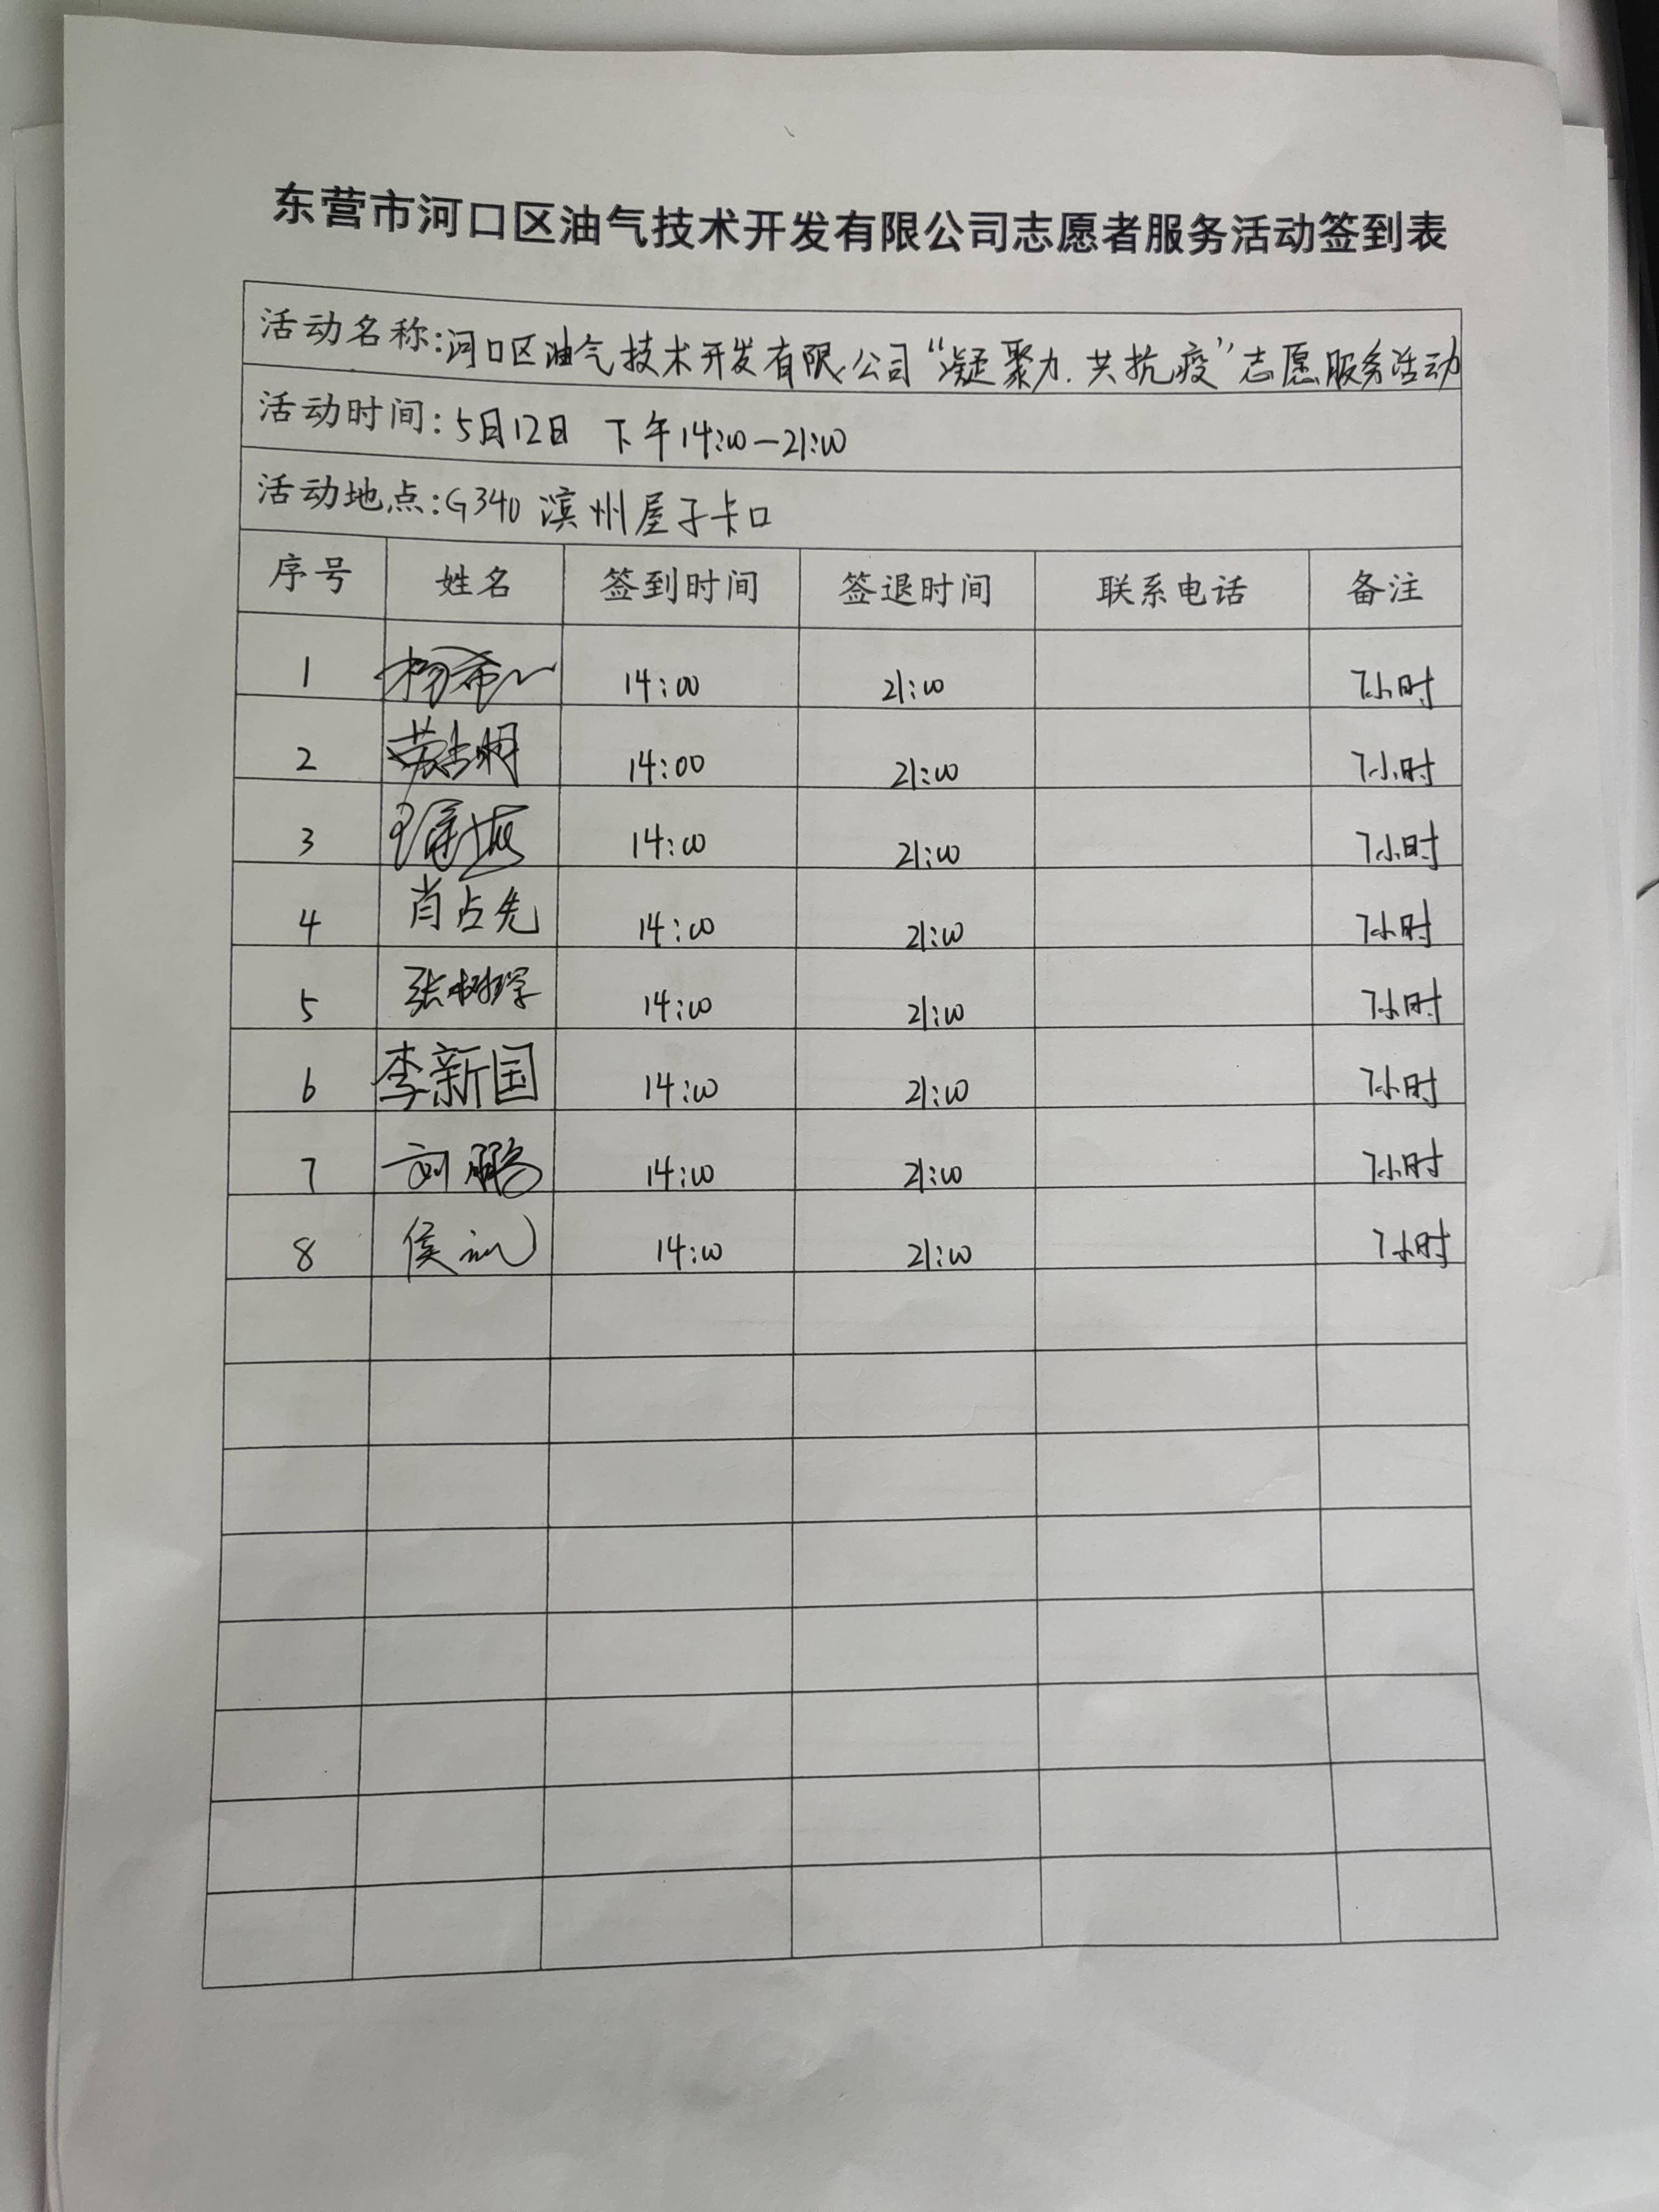 东营市河口区油气技术开发有限公司志愿者服务活动签到表
活动名称:河口区油气技术开发有限公司“凝聚力.共抗疫”志愿服务活动
活动时间:5月12日 下午14:00-21:00
活动地点:G340 滨州屋子卡口
序号 姓名 签到时间 签退时间 联系电话 备注
1 14:00 21:00 7小时
2 14:00 21:00 7小时
3 14:00 21:00 7小时
4 肖占先 14:00 21:00 7小时
5 张树 14:00 21:00 7小时
6 李新国 14:00 21:00 7小时
7 刘鹏 14:00 21:00 7小时
8 侯 14:00 21:00 7小时